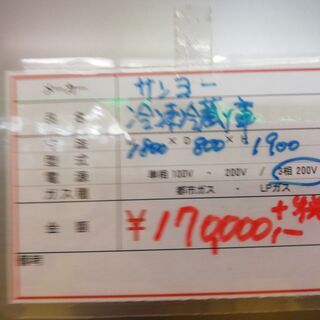 メーカー サンヨー
品名 冷凍冷蔵庫
寸法 1800 × D 800 × H 1900
型式
電源 単相 100V ・ 200V / 3相 200V
ガス種 都市ガス ・ LPガス
金額 ¥170,000,- +税
備考